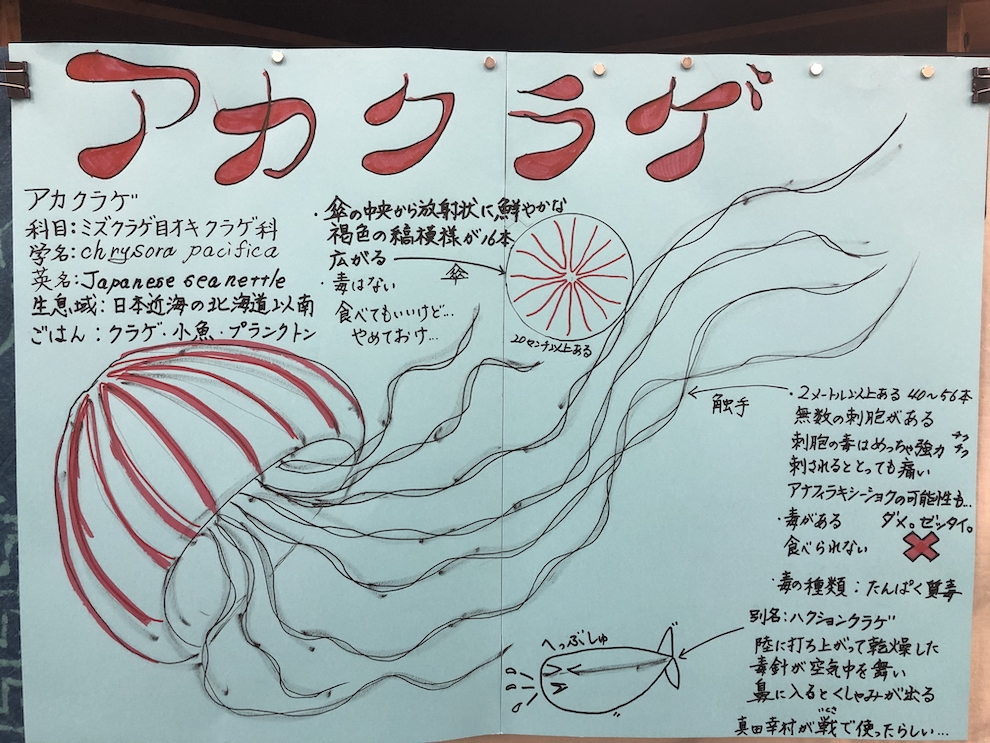 アカクラゲ
アカクラゲ
科目:ミズクラゲ目オキクラゲ科
学名:chrysora pacifica
英名:Japanese seanettle
生息域:日本近海の北海道以南
ごはん:クラゲ・小魚・プランクトン
・傘の中央から放射状に鮮やかな
褐色の縞模様が16本
広がる
傘
・毒はない
食べてもいいけど…
やめておけ…
20センチ以上ある
触手
・2メートル以上ある 40〜56本
無数の刺胞がある
刺胞の毒はめっちゃ強力
刺されるととっても痛い
アナフィラキシーショクの可能性も…
・毒がある ダメ。ゼッタイ。
食べられない
・毒の種類:たんぱく質毒
別名:ハクションクラゲ
陸に打ち上がって乾燥した
毒針が空気中を舞い
鼻に入るとくしゃみが出る
真田幸村が戦で使ったらしい…
いくさ
へっぶしゅ